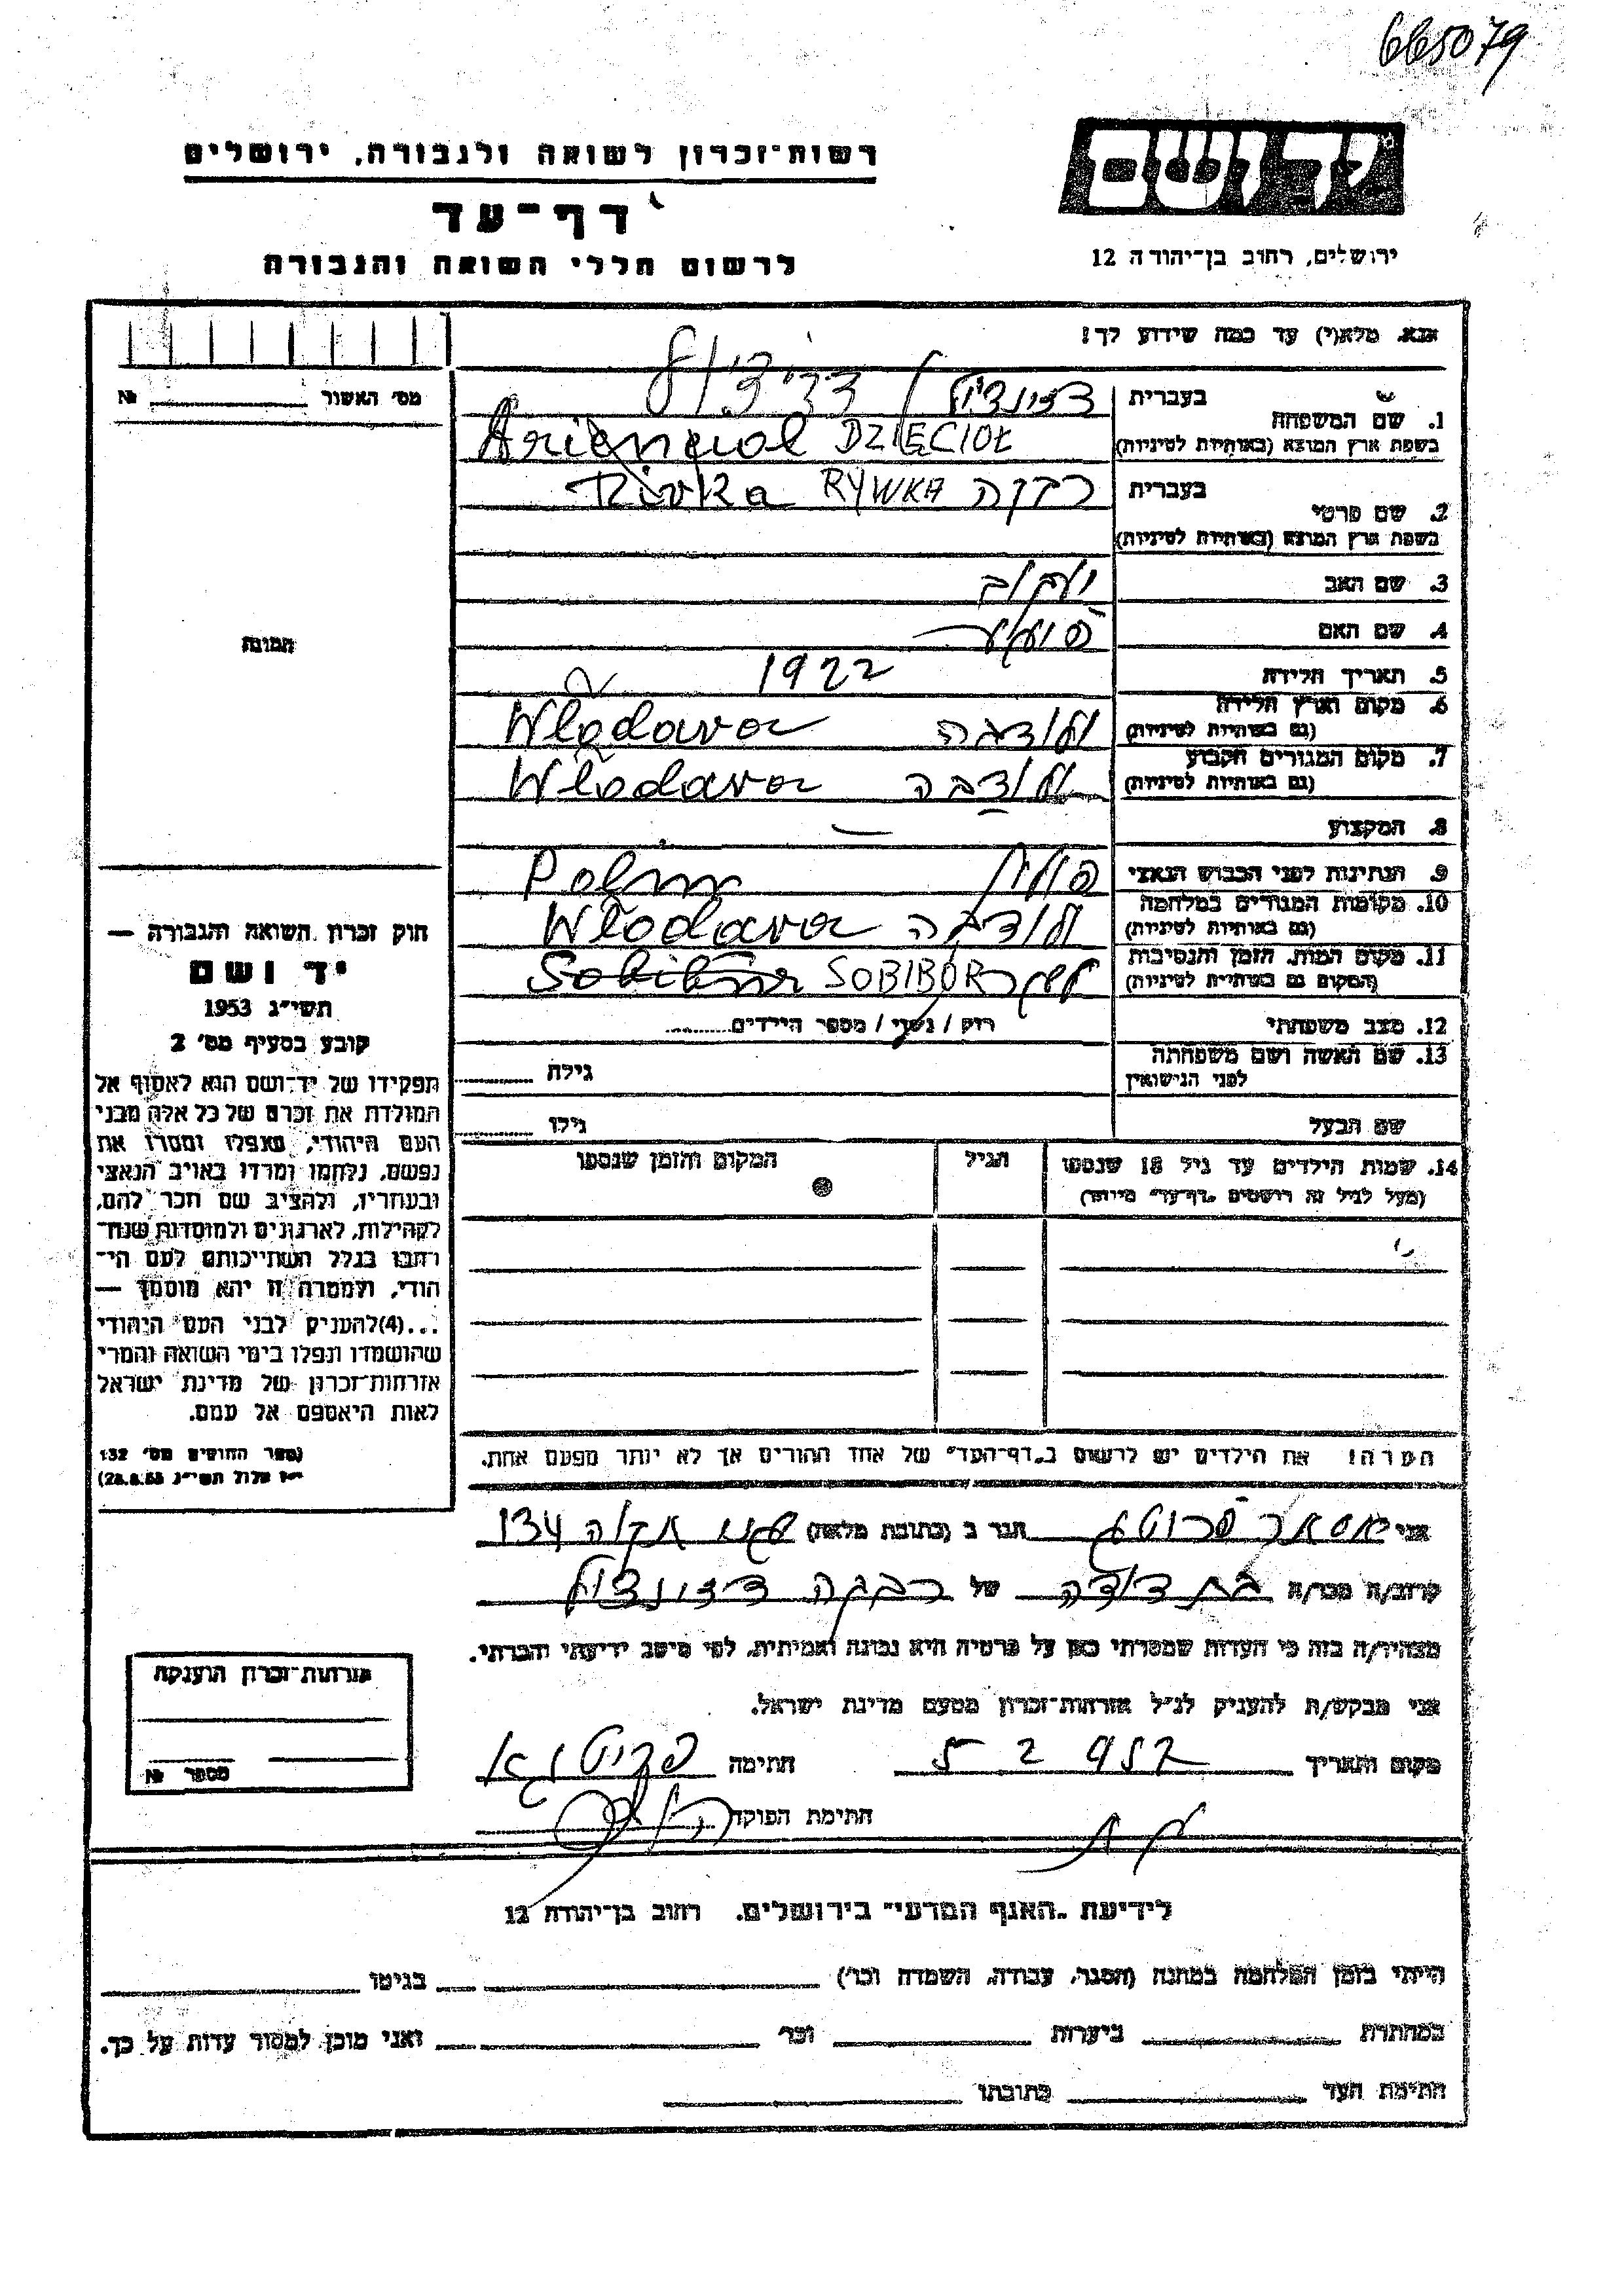 665079
יד ושם
רשות-זכרון לשואה ולגבורה, ירושלים
דף-עד
לרשום חללי השואה והגבורה
ירושלים, רחוב בן-יהודה 12
אנא, מלא(י) עד כמה שידוע לך!
מס' האשור № ________
1. שם המשפחה
בעברית
בשפת ארץ המוצא (באותיות לטיניות)
DZIĘCIOŁ
2. שם פרטי
בעברית רבקה RYWKA Rivka
בשפת ארץ המוצא (באותיות לטיניות)
3. שם האב יעקוב
4. שם האם
5. תאריך הלידה 1922
6. מקום וארץ הלידה
(גם באותיות לטיניות)
ולודבה Wlodava
7. מקום המגורים הקבוע
(גם באותיות לטיניות)
ולודבה Wlodava
8. המקצוע —
9. הנתינות לפני הכבוש הנאצי
10. מקומות המגורים במלחמה
(גם באותיות לטיניות)
ולודבה Wlodava
11. מקום המות, הזמן והנסיבות
(המקום גם באותיות לטיניות)
SOBIBOR
12. מצב משפחתי
רווק / נשוי / מספר הילדים........
13. שם האשה ושם משפחתה
לפני הנישואין
גילה ........
שם הבעל
גילו ........
14. שמות הילדים עד גיל 18 שנספו
(מעל לגיל זה רושמים "דף-עד" מיוחד)
הגיל
המקום והזמן שנספו
הערה! את הילדים יש לרשום ב"דף-העד" של אחד ההורים אך לא יותר מפעם אחת.
התמונה
חוק זכרון השואה והגבורה —
יד ושם
תשי"ג 1953
קובע בסעיף מס' 2
תפקידו של יד-ושם הוא לאסוף אל
המולדת את זכרם של כל אלה מבני
העם היהודי, שנפלו ומסרו את
נפשם, נלחמו ומרדו באויב הנאצי
ובעוזריו, ולהציב שם וזכר להם,
לקהילות, לארגונים ולמוסדות שנח-
רבו בגלל השתייכותם לעם הי-
הודי, ולמטרה זו יהא מוסמך —
...(4)להעניק לבני העם היהודי
שהושמדו ונפלו בימי השואה והמרי
אזרחות-זכרון של מדינת ישראל
לאות היאספם אל עמם.
(ספר החוקים מס' 132
י"ז אלול תשי"ג 28.8.53)
אני אסתר
הגר ב (כתובת מלאה) 134
קרוב/ה מכר/ה בת דודה של רבקה
מצהיר/ה בזה כי העדות שמסרתי כאן על פרטיה היא נכונה ואמיתית, לפי מיטב ידיעתי והכרתי.
אני מבקש/ת להעניק לנ"ל אזרחות-זכרון מטעם מדינת ישראל.
מקום ותאריך 5 2 957
חתימה
חתימת הפוקד
אזרחות-זכרון הוענקה
מספר №
לידיעת "האגף המדעי" בירושלים. רחוב בן-יהודה 12
הייתי בזמן המלחמה במחנה (הסגר, עבודה, השמדה וכו') ________ בגיטו ________
במחתרת ________ ביערות ________ וכו' ________ ואני מוכן למסור עדות על כך.
חתימת העד ________ כתובתו ________